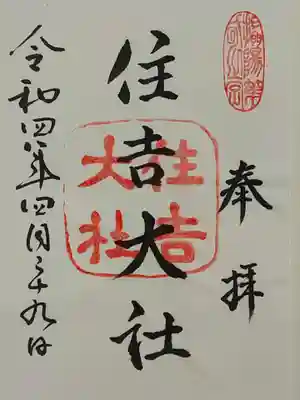 奉拝
住吉大社
住吉
大社
令和四年四月二十九日